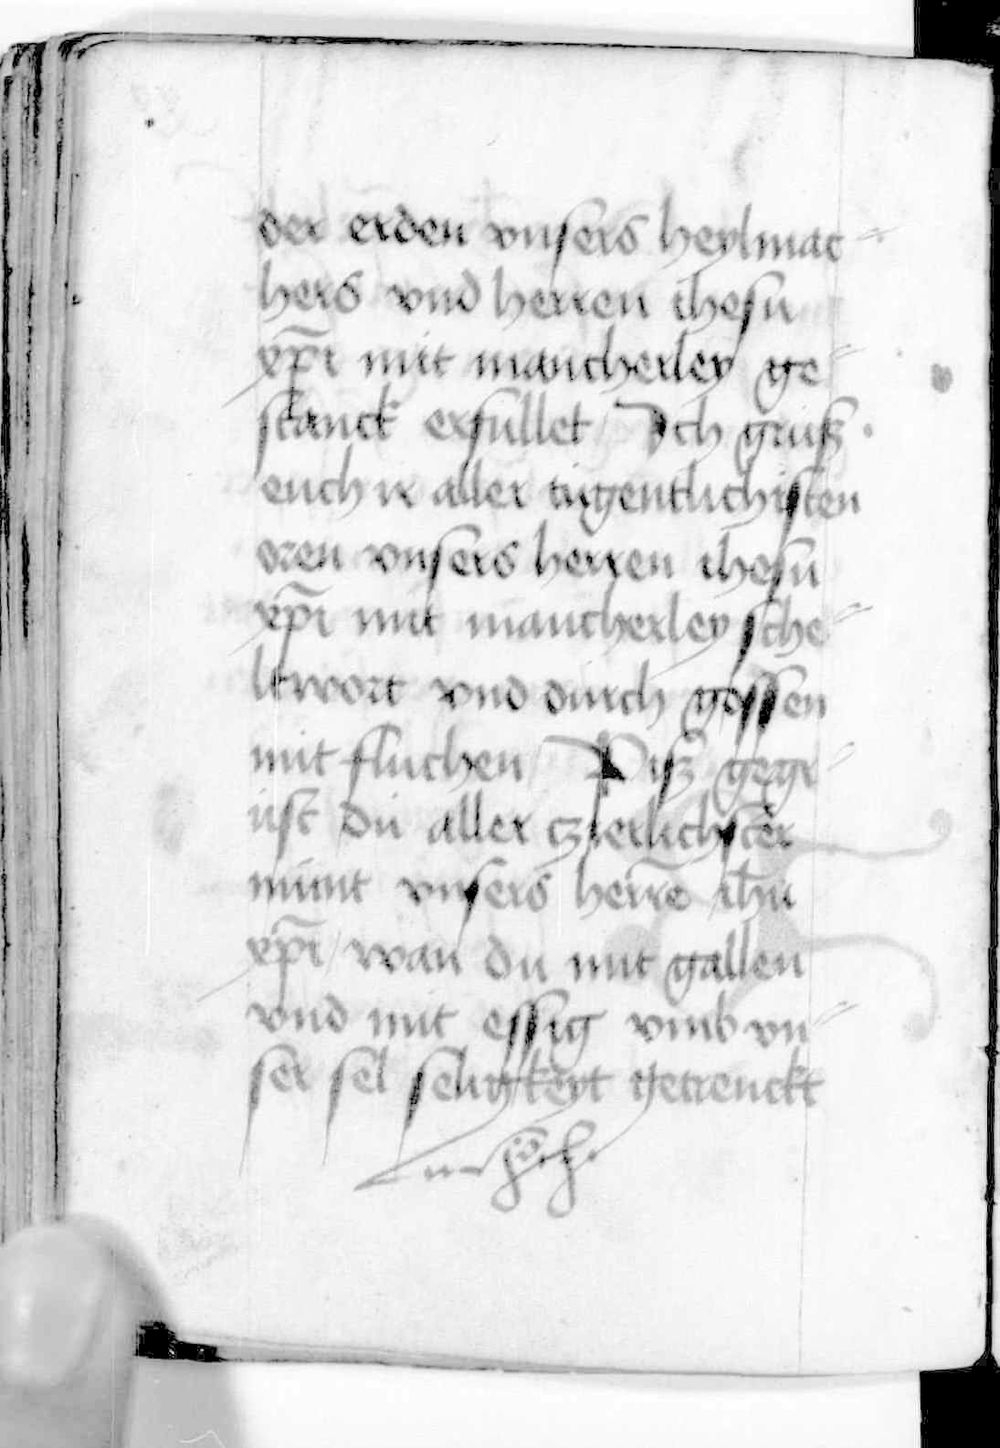 der erden vnsers heylmac=
hers vnd herren ihesu
xp̄i mit mancherley ge=
stanck erfullet / Ich gruß
euch ir aller tugentlichisten
oren vnsers herren ihesu
xp̄i mit mancherley sche=
ltwort vnd durch gossen
mit fluchen / Piß gegr=
ust du aller czierlichster
munt vnsers herrē ih̄u
xp̄i / wan du mit gallen
vnd mit essig vmb vn=
ser sel seligkeyt getrenckt